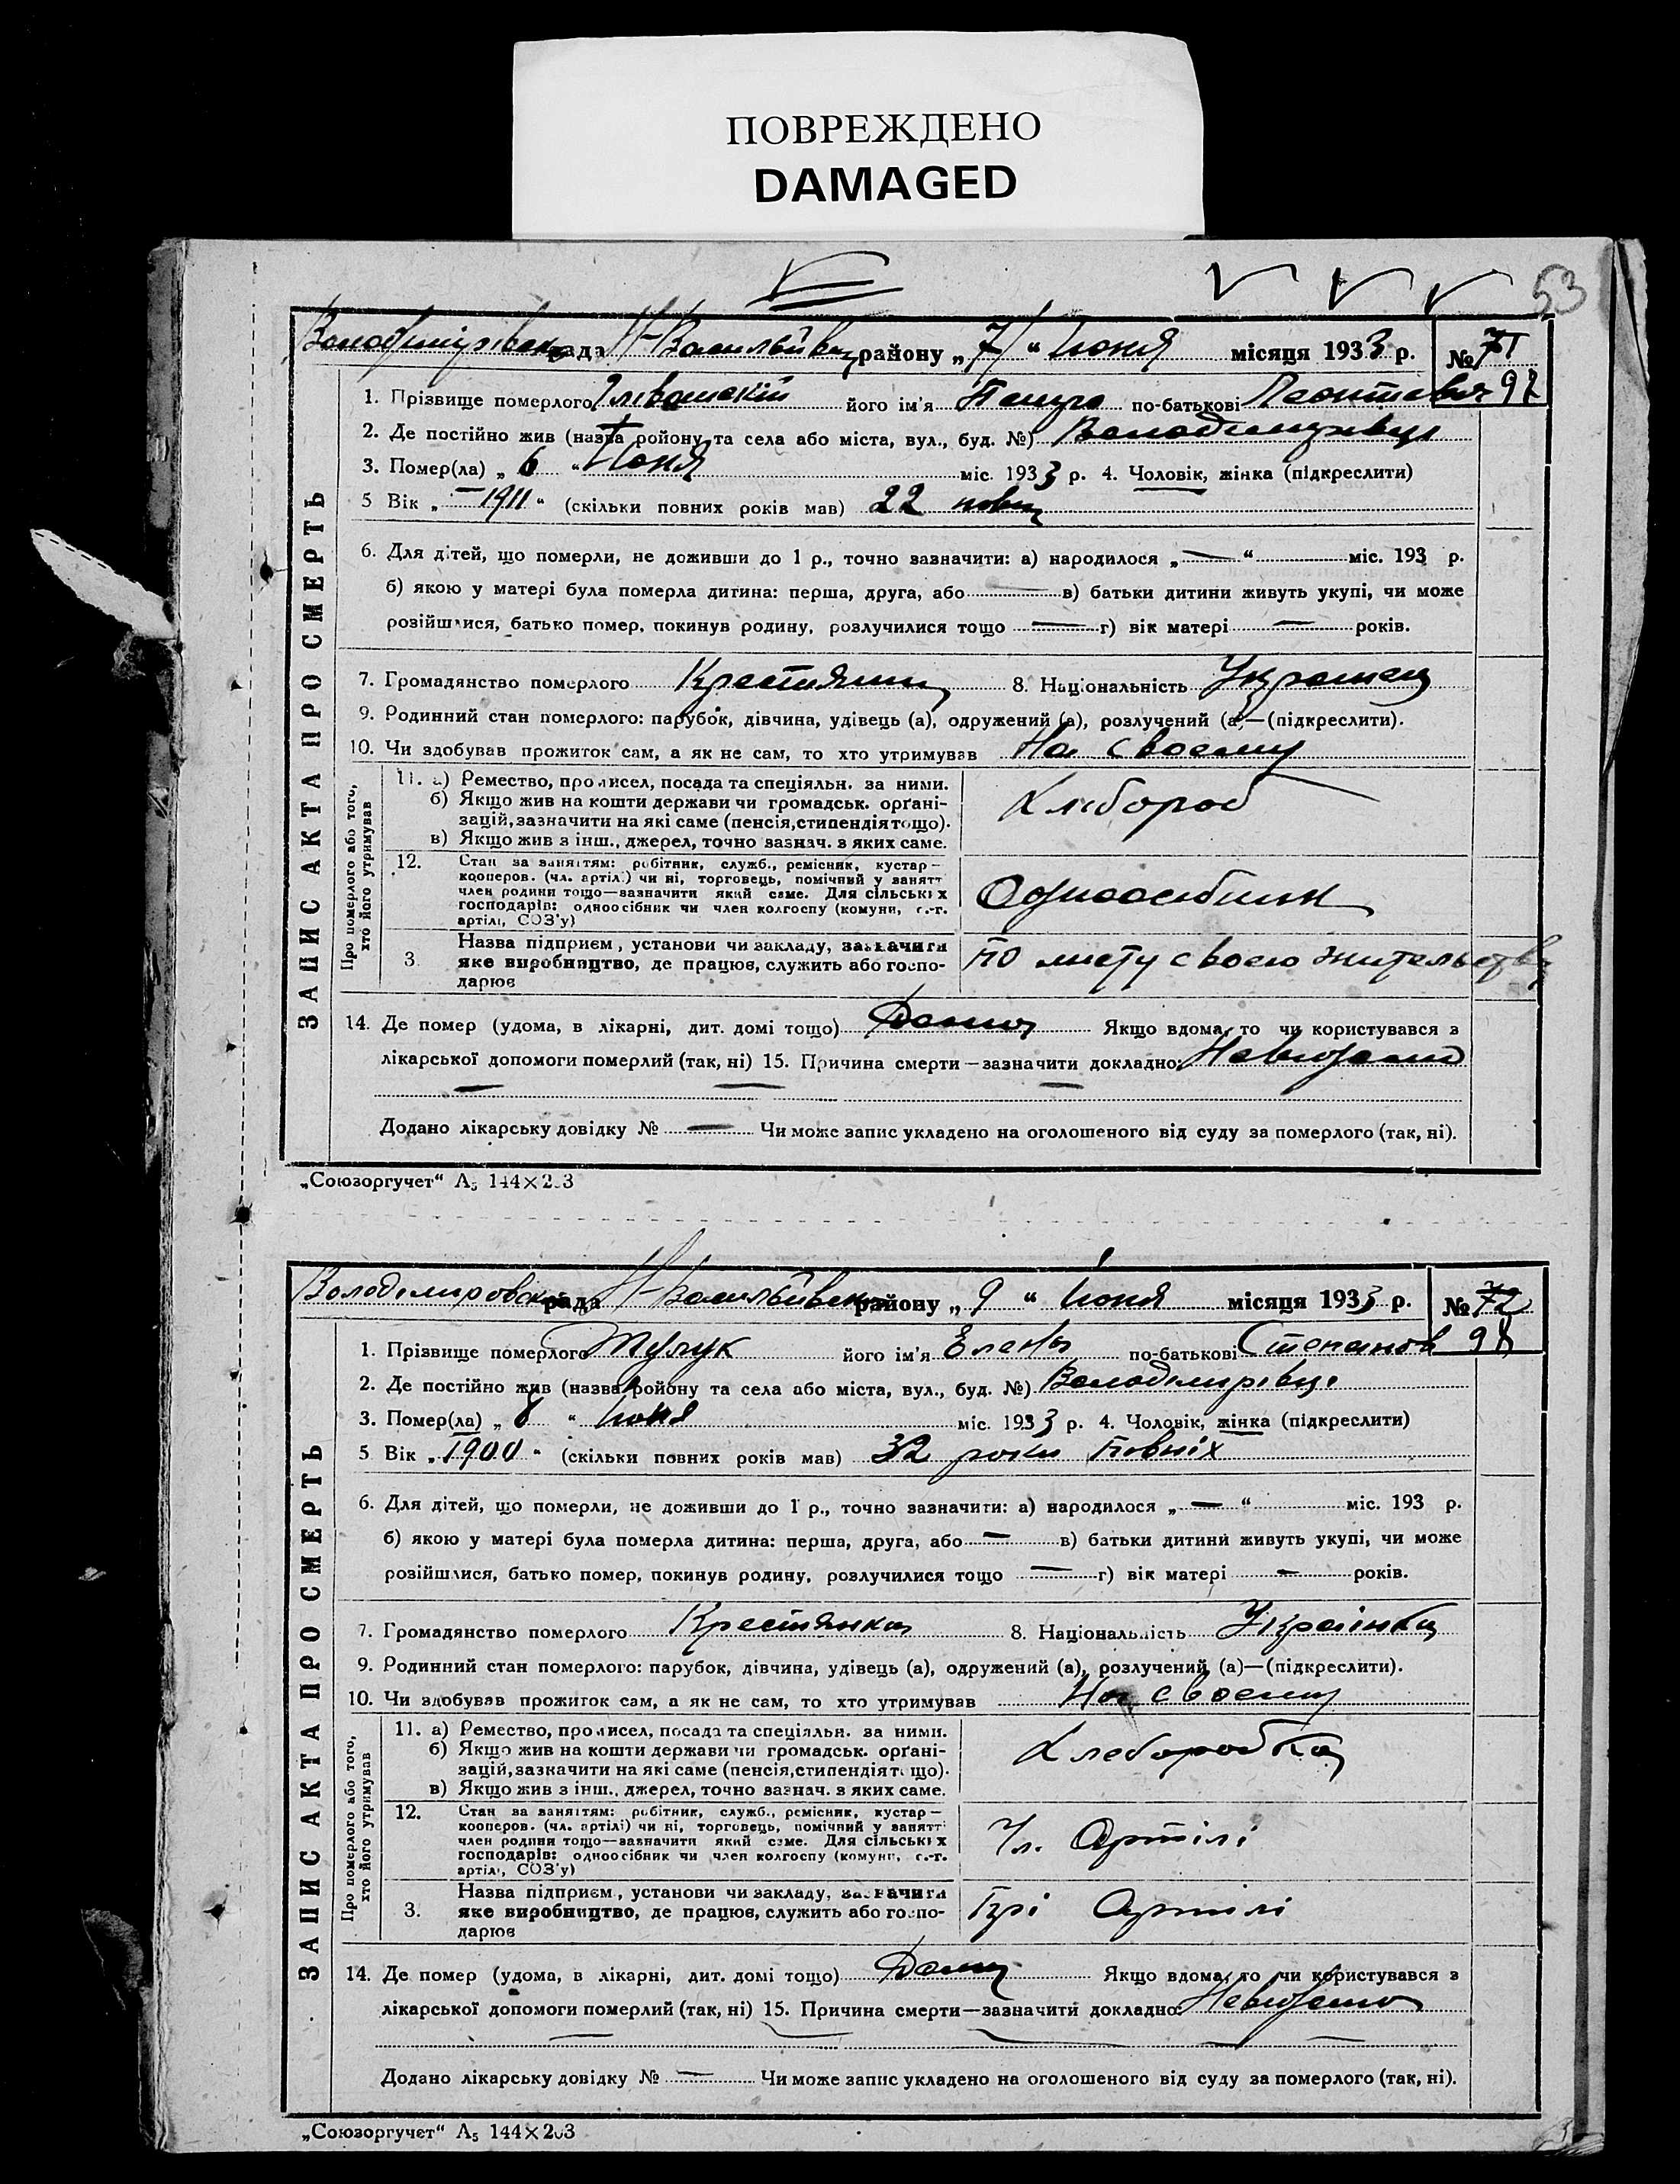 ПОВРЕЖДЕНО
DAMAGED
53
рада Н-Васильївськ району „7“ Июня місяця 1933 р. № 71
97
1. Прізвище померлого його ім'я по-батькові Леонтьевич
2. Де постійно жив (назва ройону та села або міста, вул., буд. №) Володимирівці
3. Помер(ла) „6“ Июня міс. 1933 р. 4. Чоловік, жінка (підкреслити)
5 Вік „—1911“ (скільки повних років мав) 22 повн
6. Для дітей, що померли, не доживши до 1 р., точно зазначити: а) народилося „—“ міс. 193 р.
б) якою у матері була померла дитина: перша, друга, або — в) батьки дитини живуть укупі, чи може
розійшлися, батько помер, покинув родину, розлучилися тощо — г) вік матері — років.
7. Громадянство померлого Крестянин 8. Національність Украинец
9. Родинний стан померлого: парубок, дівчина, удівець (а), одружений (а), розлучений (а)—(підкреслити).
10. Чи здобував прожиток сам, а як не сам, то хто утримував На своему
ЗАПИС АКТА ПРО СМЕРТЬ
Про померлого або того, хто його утримував
11. а) Ремество, промисел, посада та спеціяльн. за ними.
б) Якщо жив на кошти держави чи громадськ. орґані-
зацій, зазначити на які саме (пенсія, стипендія тощо).
в) Якщо жив з інш., джерел, точно зазнач. з яких саме.
Хлібороб
12. Стан за заняттям: робітник, служб., ремісник, кустар—
кооперов. (чл. артілі) чи ні, торговець, помічний у занятт
член родини тощо—зазначити який саме. Для сільських
господарів: одноосібник чи член колгоспу (комуни, с.-г.
артілі, СОЗ'у)
Одноосибник
3. Назва підприєм., установи чи закладу, зазначити
яке виробництво, де працює, служить або госпо-
дарює
по мисту своею жительству
14. Де помер (удома, в лікарні, дит. домі тощо) Дома Якщо вдома, то чи користувався з
лікарської допомоги померлий (так, ні) 15. Причина смерти—зазначити докладно:
Додано лікарську довідку № — Чи може запис укладено на оголошеного від суду за померлого (так, ні).
„Союзоргучет“ А5 144×203
Володимировска рада Н-Васильївськ району „9“ Июня місяця 1933 р. № 72
98
1. Прізвище померлого його ім'я Елены по-батькові Степанов
2. Де постійно жив (назва ройону та села або міста, вул., буд. №) Володимирівці
3. Помер(ла) „8“ Июня міс. 1933 р. 4. Чоловік, жінка (підкреслити)
5 Вік „1900“ (скільки повних років мав) 32 роки повніх
6. Для дітей, що померли, не доживши до 1 р., точно зазначити: а) народилося „—“ міс. 193 р.
б) якою у матері була померла дитина: перша, друга, або — в) батьки дитини живуть укупі, чи може
розійшлися, батько помер, покинув родину, розлучилися тощо — г) вік матері — років.
7. Громадянство померлого Крестянка 8. Національність Українка
9. Родинний стан померлого: парубок, дівчина, удівець (а), одружений (а), розлучений (а)—(підкреслити).
10. Чи здобував прожиток сам, а як не сам, то хто утримував На своему
ЗАПИС АКТА ПРО СМЕРТЬ
Про померлого або того, хто його утримував
11. а) Ремество, промисел, посада та спеціяльн. за ними.
б) Якщо жив на кошти держави чи громадськ. орґані-
зацій, зазначити на які саме (пенсія, стипендія тощо).
в) Якщо жив з інш., джерел, точно зазнач. з яких саме.
Хлеборобка
12. Стан за заняттям: робітник, служб., ремісник, кустар—
кооперов. (чл. артілі) чи ні, торговець, помічний у занятт
член родини тощо—зазначити який саме. Для сільських
господарів: одноосібник чи член колгоспу (комуни, с.-г.
артілі, СОЗ'у)
Чл. Артілі
3. Назва підприєм., установи чи закладу, зазначити
яке виробництво, де працює, служить або госпо-
дарює
Прі Артилі
14. Де помер (удома, в лікарні, дит. домі тощо) Дома Якщо вдома, то чи користувався з
лікарської допомоги померлий (так, ні) 15. Причина смерти—зазначити докладно:
Додано лікарську довідку № — Чи може запис укладено на оголошеного від суду за померлого (так, ні).
„Союзоргучет“ А5 144×203